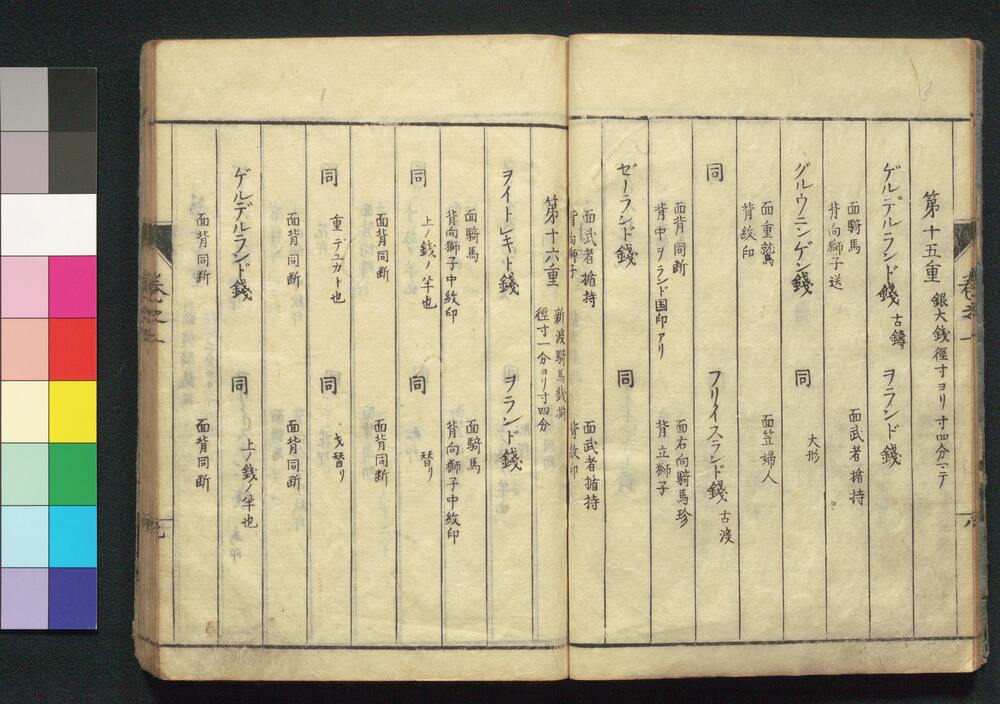 第十五重 銀大銭徑寸ヨリ寸四分ニテ
ゲルデルランド銭 古鑄 ヲランド銭
面騎馬 面武者楯持
背向獅子送
グルウニンゲン銭 同 大形
面重鷲 面笠婦人
背紋印
同 フリイスランド銭 古渡
面背同断 面右向騎馬珍
背中ヲランド国印アリ 背立獅子
ゼーランド銭 同
面武者楯持 面武者楯持
背向獅子 背紋印
第十六重 新渡騎馬銭
徑寸一分ヨリ寸四分
ヲイトレキト銭 ヲランド銭
面騎馬 面騎馬
背向獅子中紋印 背向獅子中紋印
同 上ノ銭ノ半也 同 替リ
面背同断 面背同断
同 重デュカト也 同 替リ
面背同断 面背同断
ゲルデルランド銭 同 上ノ銭ノ半也
面背同断 面背同断